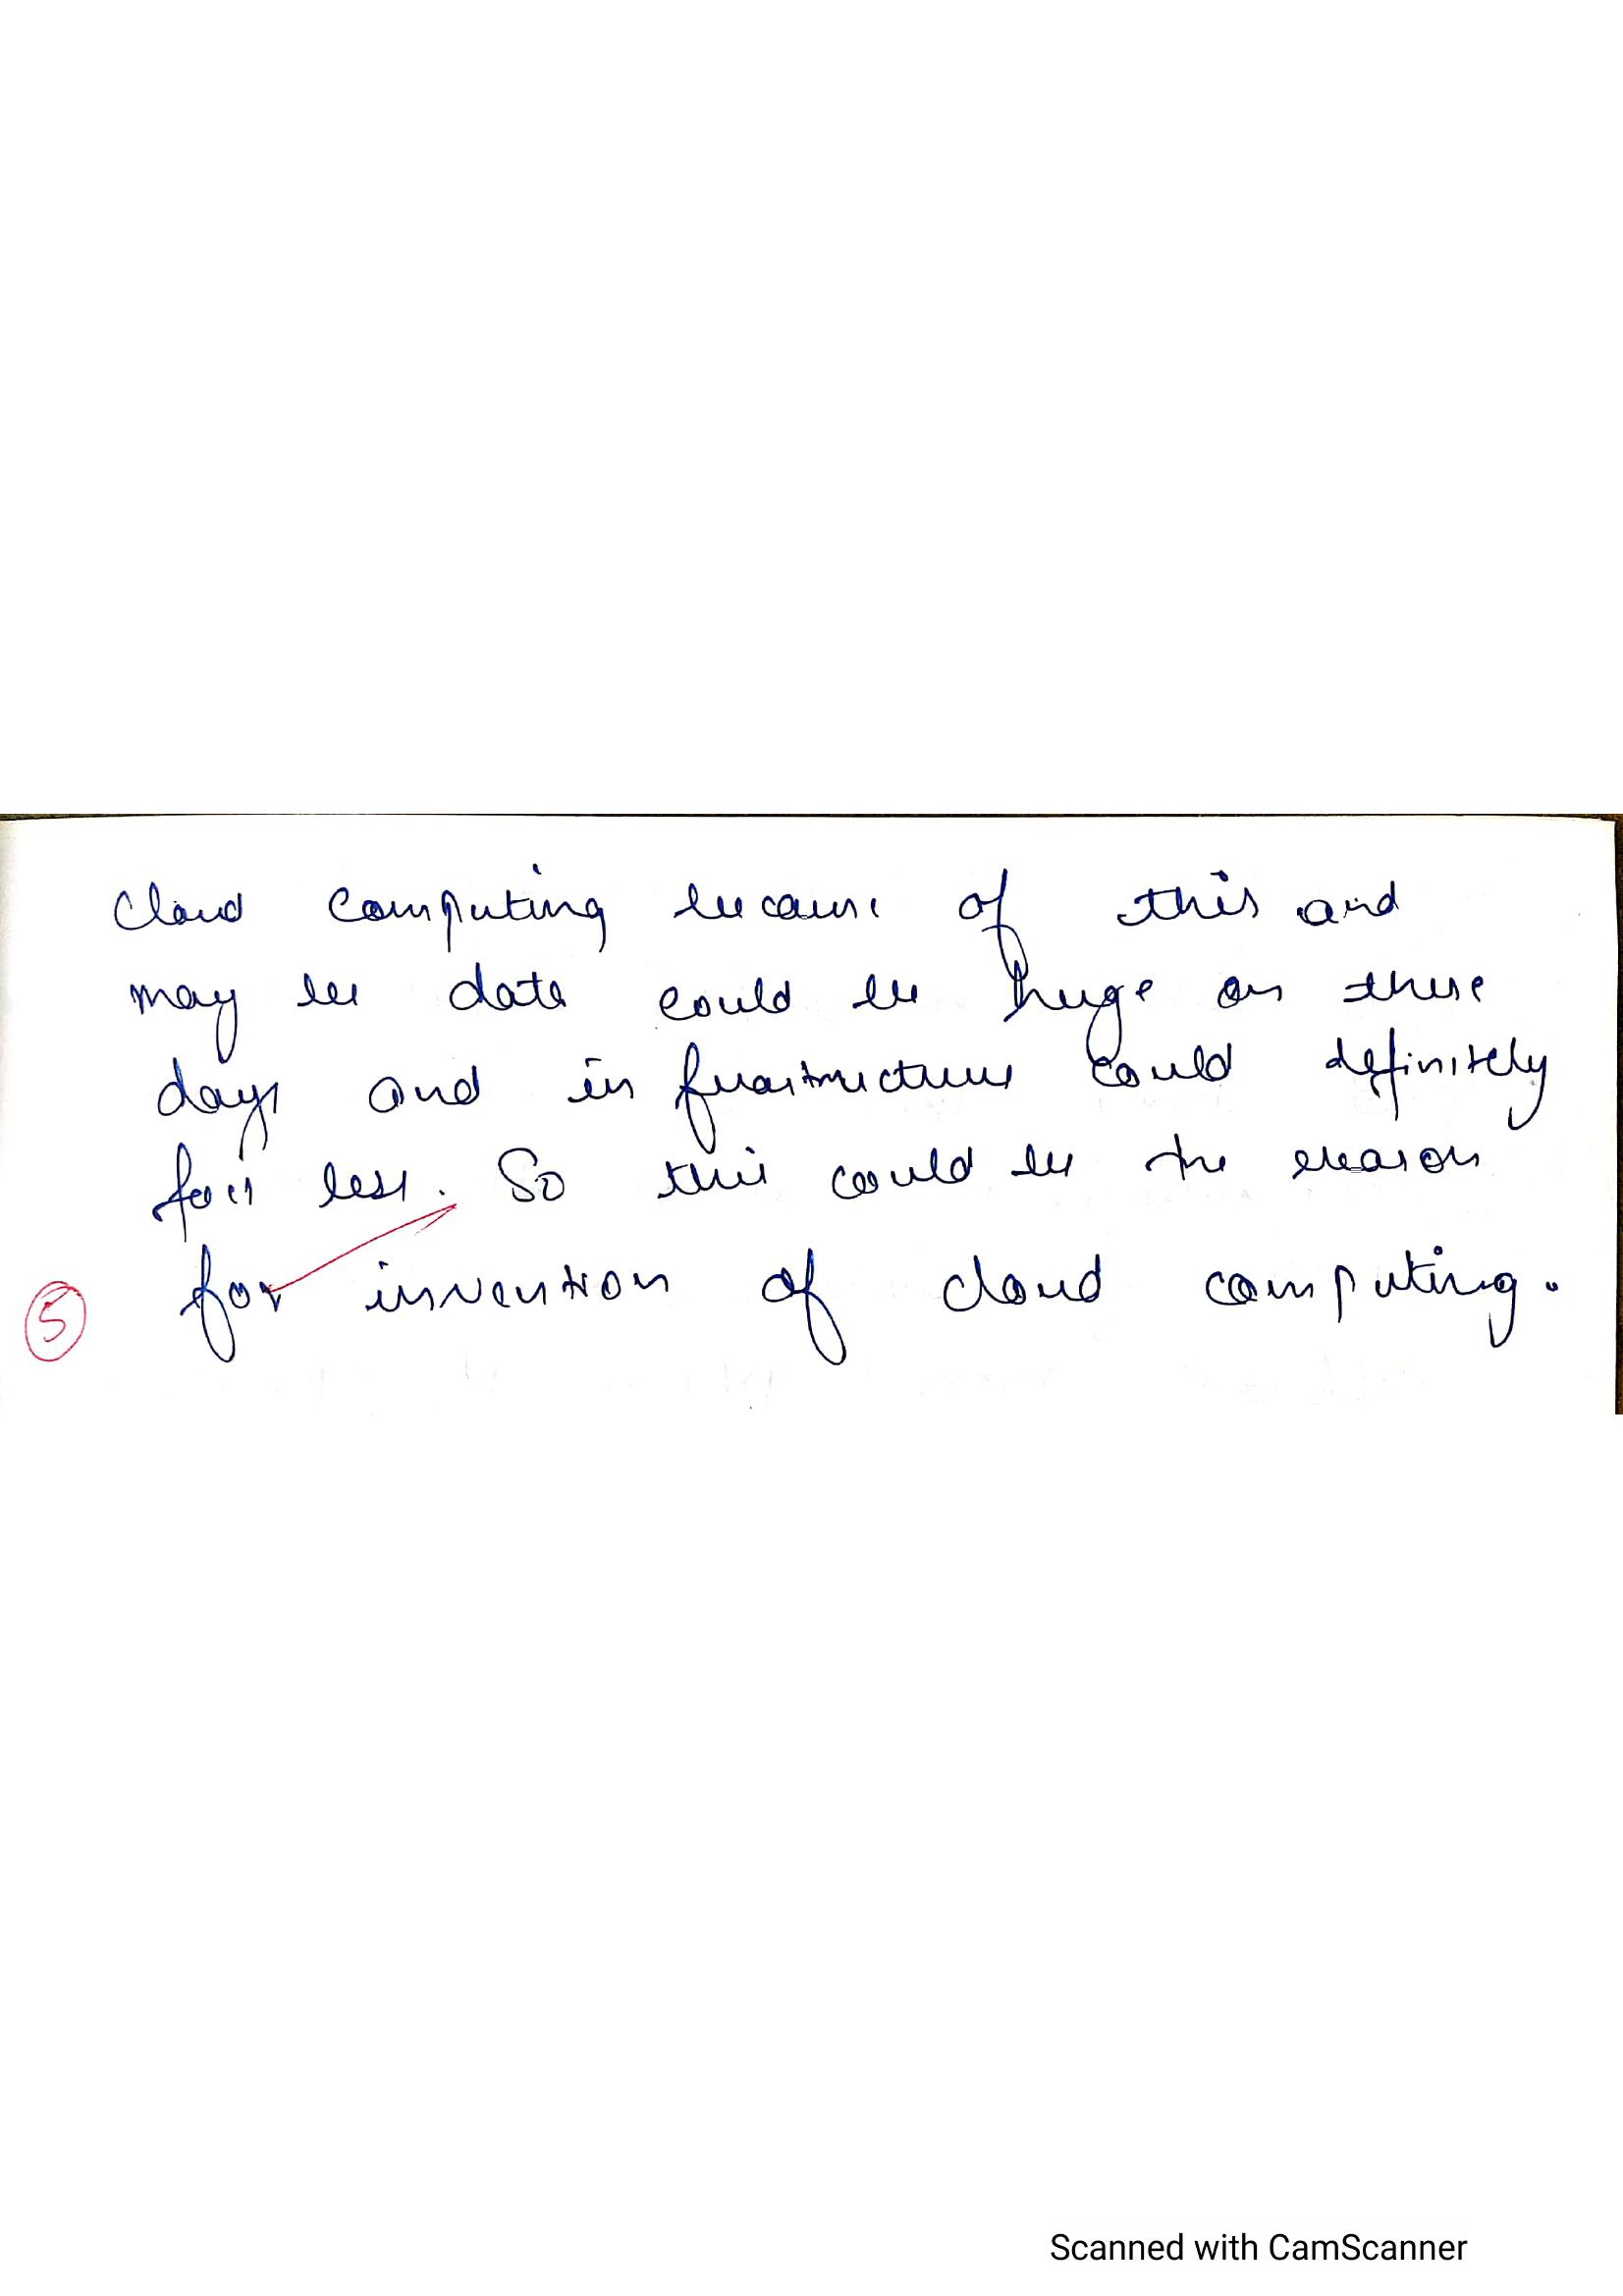 Cloud computing because of this and
may be data could be huge on these
days and infrastructure could definitely
for less. So this could be the reason
5 for invention of cloud computing.
Scanned with CamScanner